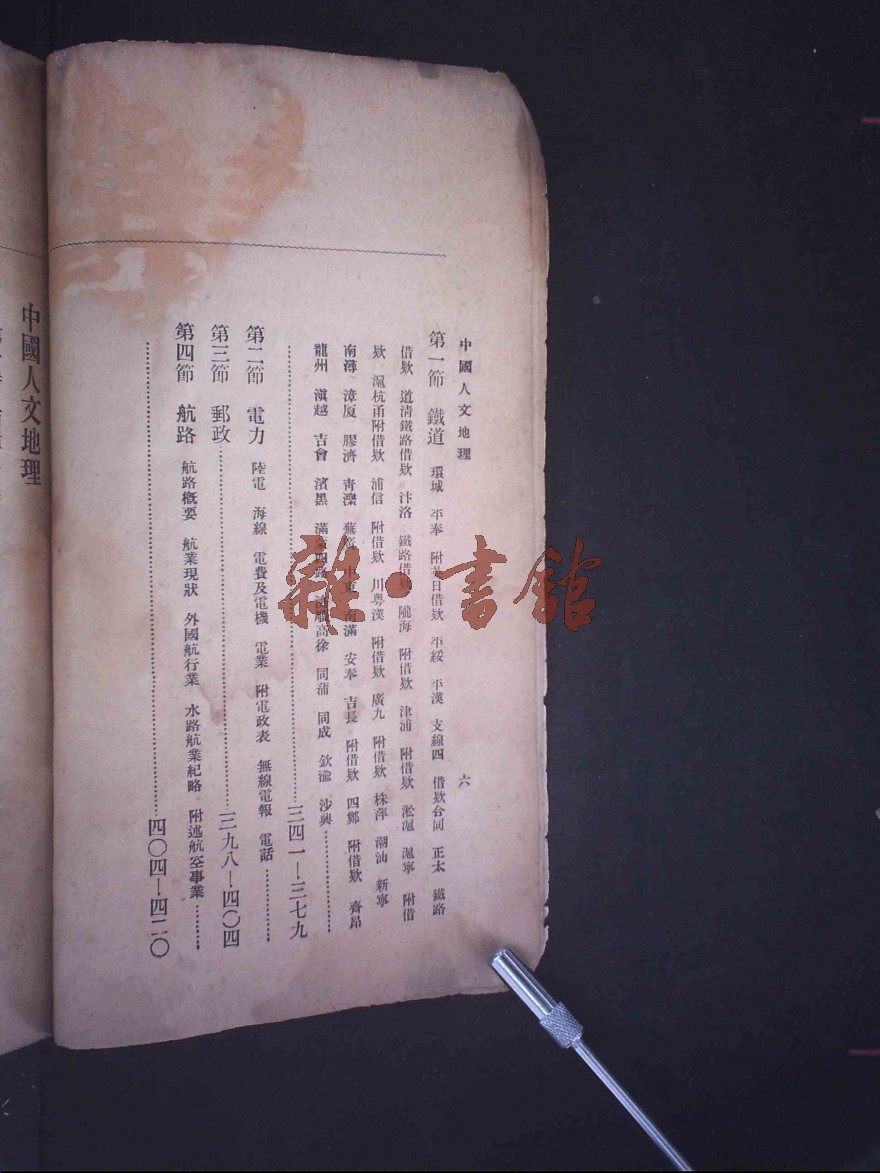 中國人文地理　六
第一節　鐵道　環城　平奉　附英日借欵　平綏　平漢　支線四　借欵合同　正太　鐵路
借欵　道清鐵路借欵　汴洛　鐵路借欵　隴海　附借欵　津浦　附借欵　淞滬　滬寧　附借
欵　滬杭甬附借欵　浦信　附借欵　川粵漢　附借欵　廣九　附借欵　株萍　潮汕　新寧
南潯　漳厦　膠濟　青　南滿　安奉　吉長　附借欵　四鄭　附借欵　齊昂
龍州　滇越　吉會　濱黑　滿　高徐　同蒲　同成　欽渝　沙興…………
…………三四一—三七九
第二節　電力　陸電　海線　電費及電機　電業　附電政表　無線電報　電話…………
第三節　郵政…………三九八—四〇四
第四節　航路　航路概要　航業現狀　外國航行業　水路航業紀略　附述航空事業…………
…………四〇四—四二〇
中國人文地理
雜·書館